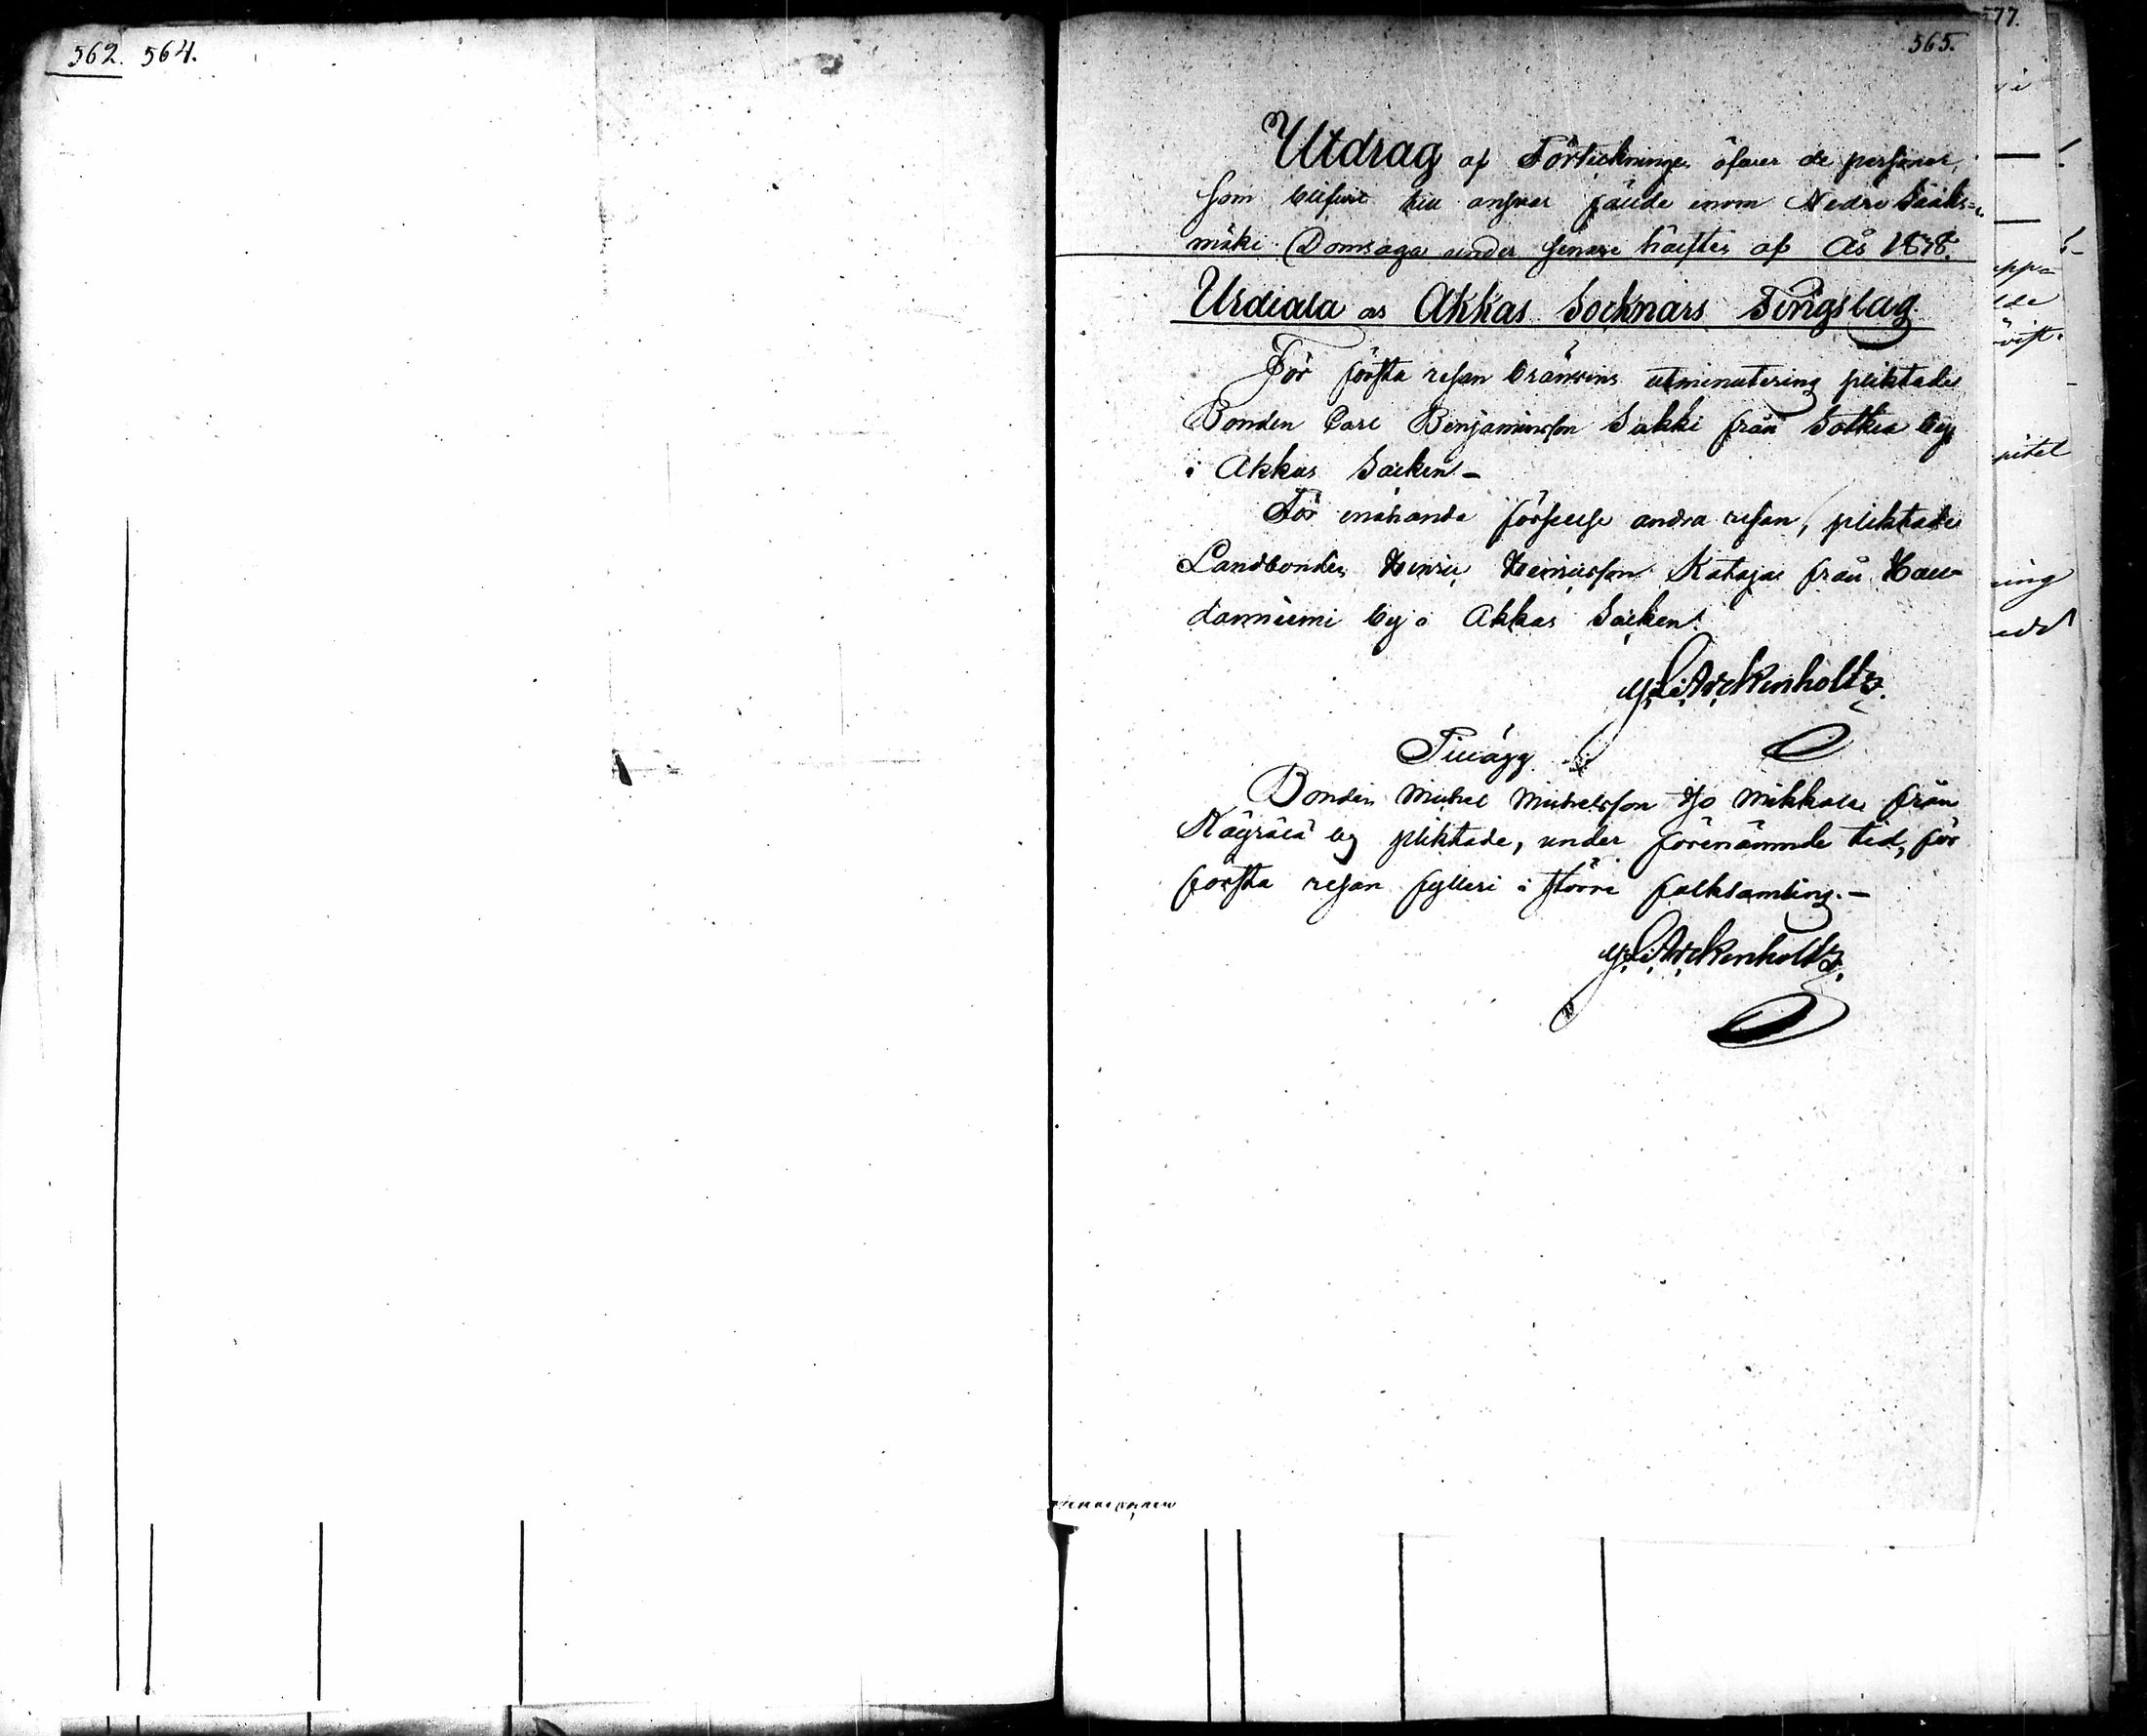 562. 564.
577.
565.
Utdrag af Förtekningen öfwer de personer,
som blifwit till answar fälde inom Nedre Sääks=
mäki Domsaga under senare hälften af År 1878.
Urdiala och Akkas Socknars Tingslag.
För första resan bränvins utminutering pliktade
Bonden Carl Benjaminsson Sukki från Sotkia by
i Akkas Socken. –
För enahanda förseelse andra resan, pliktade
Landbonden Henric Henricsson Kataja från Hau-
danniemi by i Akkas Socken.
Arckenholtz.
Tillägg.
Bonden Michel Michelsson Iso Mikkola från
Kägrälä by pliktade, under förenämnde tid, för
första resan fylleri i större folksamling. –
Arckenholtz.